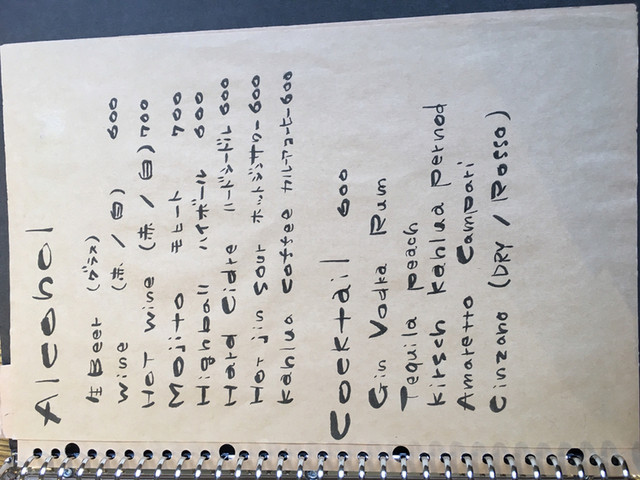 Alcohol
生Beer (グラス)
wine (赤/白) 600
Hot wine (赤/白) 700
Mojito モヒート 700
Highball ハイボール 600
Hard Cidre ハードシードル 600
Hot jin sour ホットジンサワー 600
kahlua coffee カルーアコーヒー 600
Cocktail 600
Gin Vodka Rum
Tequila peach
kirsch kahlua pernod
Amaretto Campari
Cinzano (DRY / Rosso)